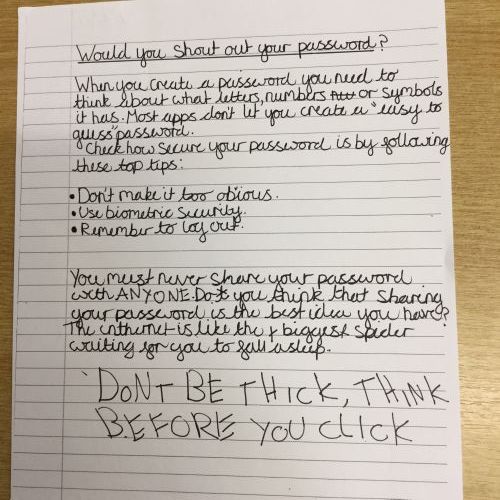 Would you shout out your password?
When you create a password you need to
think about what letters, numbers or symbols
it has. Most apps don't let you create a "easy to
guess" password.
Check how secure your password is by following
these top tips:
• Don't make it too obious.
• Use biometric security.
• Remember to log out.
You must never share your password
with ANYONE. Do you think that sharing
your password is the best idea you have?
The inthernet is like the biggest spider
waiting for you to fall asleep.
'DONT BE THICK, THINK
BEFORE YOU CLICK